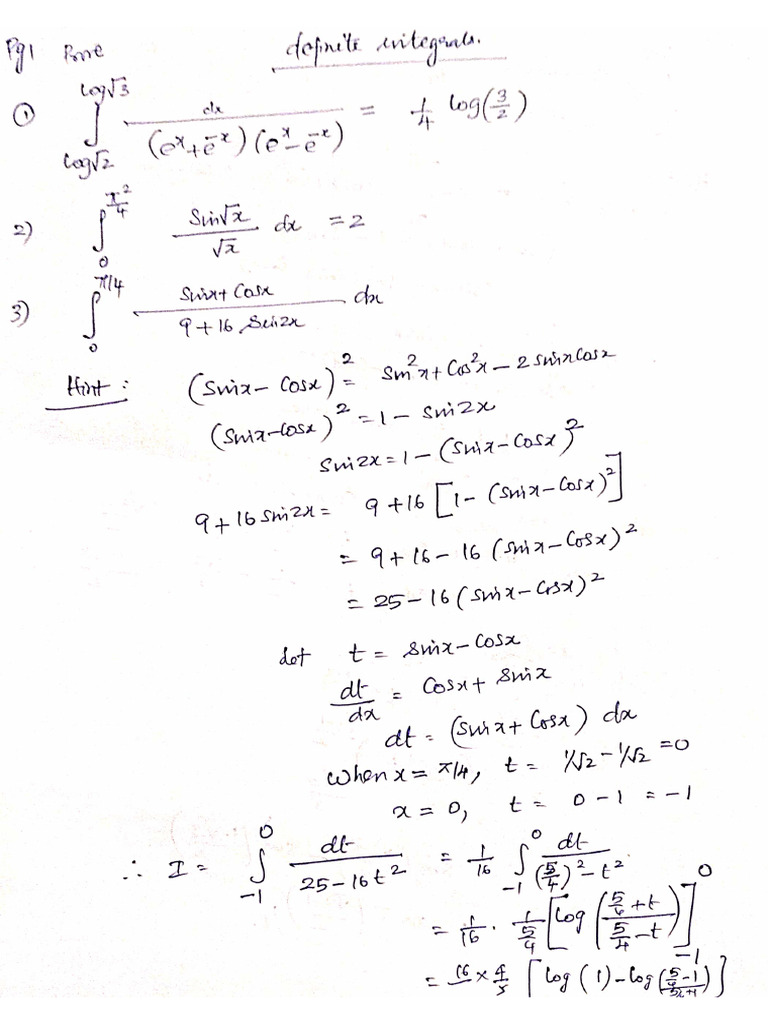 Pg1 Prove definite integrals.
① ∫_{log√2}^{log√3} dx / (e^x + e^-x)(e^x - e^-x) = 1/4 log(3/2)
2) ∫_0^{π²/4} Sin√x / √x dx = 2
3) ∫_0^{π/4} Sinx + Cosx / 9 + 16 Sin2x dx
Hint : (Sinx - Cosx)² = Sin²x + Cos²x - 2 sinx Cosx
(Sinx - Cosx)² = 1 - Sin2x
Sin2x = 1 - (Sinx - Cosx)²
9 + 16 Sin2x = 9 + 16 [1 - (Sinx - Cosx)²]
= 9 + 16 - 16 (Sinx - Cosx)²
= 25 - 16 (Sinx - Cosx)²
Let t = Sinx - Cosx
dt/dx = Cosx + Sinx
dt = (Sinx + Cosx) dx
When x = π/4, t = 1/√2 - 1/√2 = 0
x = 0, t = 0 - 1 = -1
∴ I = ∫_{-1}^0 dt / 25 - 16t² = 1/16 ∫_{-1}^0 dt / (5/4)² - t²
= 1/16 · 1 / 5/4 [log (5/4 + t / 5/4 - t)]_{-1}^0
= 16 × 4/5 [log (1) - log (5/4 - 1 / 5/4 + 1)]